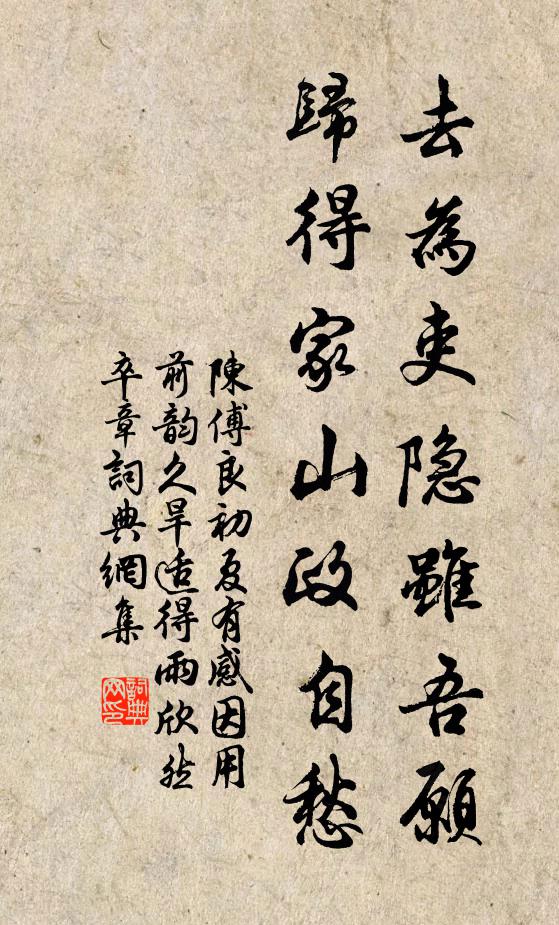 去為吏隐雖吾願
歸得家山政自愁
陳傅良初夏有感因用
前韵久旱适得雨欣然
卒章詞典網集
詞典
网印